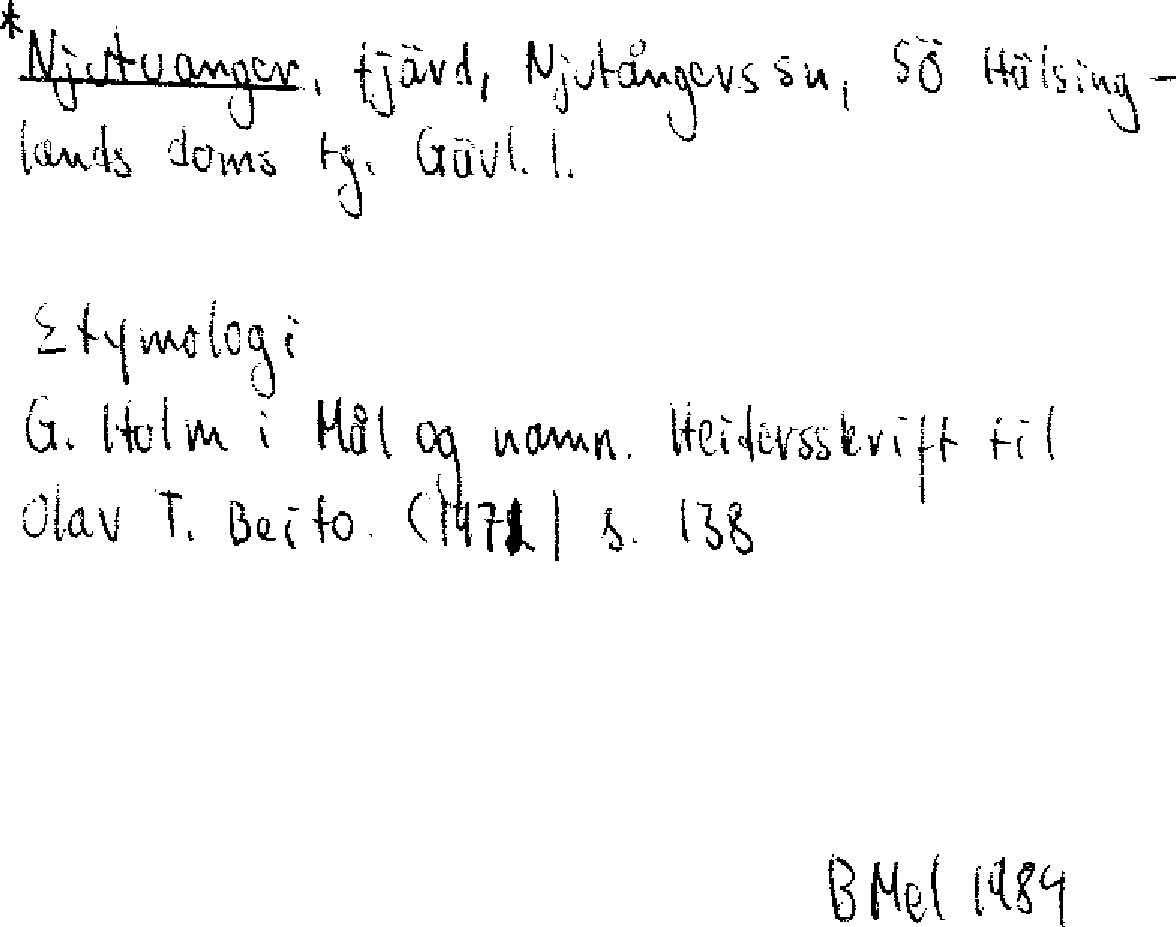 *Njutvanger, fjärd, Njutångers sn, Sö Hälsing-
lands doms tg. Gävl. l.
Etymologi
G. Holm i Mål og namn. Heidersskrift til
Olav T. Beito. (1971) s. 138
B Mel 1984